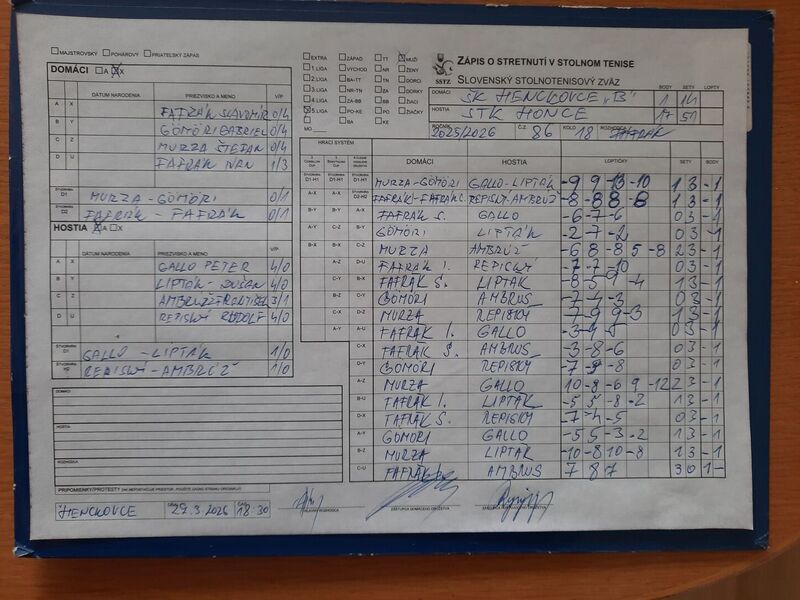 MAJSTROVSKÝ POHÁROVÝ PRIATEĽSKÝ ZÁPAS
DOMÁCI A X
DÁTUM NARODENIA PRIEZVISKO A MENO V/P
A X FAFRÁK SLAVOMÍR 0/4
B Y GÖMÖRI GABRIEL 0/4
C Z MURZA ŠTEFAN 0/4
D U FAFRÁK IVAN 1/3
ŠTVORHRA D1 MURZA - GÖMÖRI 0/1
ŠTVORHRA D2 FAFRÁK - FAFRÁK 0/1
HOSTIA A X
DÁTUM NARODENIA PRIEZVISKO A MENO V/P
A X GALLO PETER 4/0
B Y LIPTÁK DUŠAN 4/0
C Z 3/1
D U REPISKÝ RUDOLF 4/0
ŠTVORHRA GALLO - LIPTÁK 1/0
ŠTVORHRA REPISKÝ - AMBRÚŽ 1/0
DOMÁCI
HOSTIA
ROZHODCA
PRIPOMIENKY/PROTESTY
HENCKOVCE 18:30
EXTRA ZÁPAD TT MUŽI
1. LIGA VÝCHOD NR ŽENY
2. LIGA BA-TT TN DORCI
3. LIGA NR-TN ZA DORKY
4. LIGA ZA-BB BB ŽIACI
5. LIGA PO-KE PO ŽIAČKY
MO BA KE
SSTZ
ZÁPIS O STRETNUTÍ V STOLNOM TENISE
SLOVENSKÝ STOLNOTENISOVÝ ZVÄZ
BODY SETY LOPTY
DOMÁCI ŠK HENCKOVCE „B" 1 14
HOSTIA STK HONCE 17 51
ROČNÍK 2025/2026 Č.Z. 86 KOLO 18
HRACÍ SYSTÉM
DOMÁCI HOSTIA LOPTIČKY SETY BODY
MURZA-GÖMÖRI GALLO-LIPTÁK -9 9 -13 -10 1 3 - 1
REPISKÝ-AMBRÚŽ 1 3 - 1
B-Y A-Y B-X FAFRÁK S. GALLO -6 -7 -6 0 3 - 1
A-Y C-Z B-Y GÖMÖRI LIPTÁK -2 -7 -2 0 3 - 1
B-X B-X C-Z MURZA AMBRÚŽ -6 8 -8 5 -8 2 3 - 1
A-Z D-U FAFRÁK I. REPISKÝ -7 -7 -10 0 3 - 1
C-Y B-X FAFRÁK S. LIPTÁK 1 3 - 1
B-Z C-Y GÖMÖRI AMBRUS -7 -4 -3 0 3 - 1
C-X D-Z MURZA REPISKY -7 -9 9 -3 1 3 - 1
A-Y A-U FAFRÁK I. GALLO 0 3 - 1
C-X FAFRÁK S. AMBRUS -3 -8 -6 0 3 - 1
D-Y GÖMÖRI REPISKY 0 3 - 1
A-Z MURZA GALLO 10 -8 -6 9 -12 2 3 - 1
B-U FAFRÁK I. LIPTÁK -5 5 -8 -2 1 3 - 1
D-X FAFRÁK S. REPISKY -7 -4 -5 0 3 - 1
A-Y GÖMORI GALLO -5 5 -3 -2 1 3 - 1
B-Z MURZA LIPTÁK -10 -8 10 -8 1 3 - 1
C-U FAFRÁK AMBRUS 7 8 7 3 0 1 -